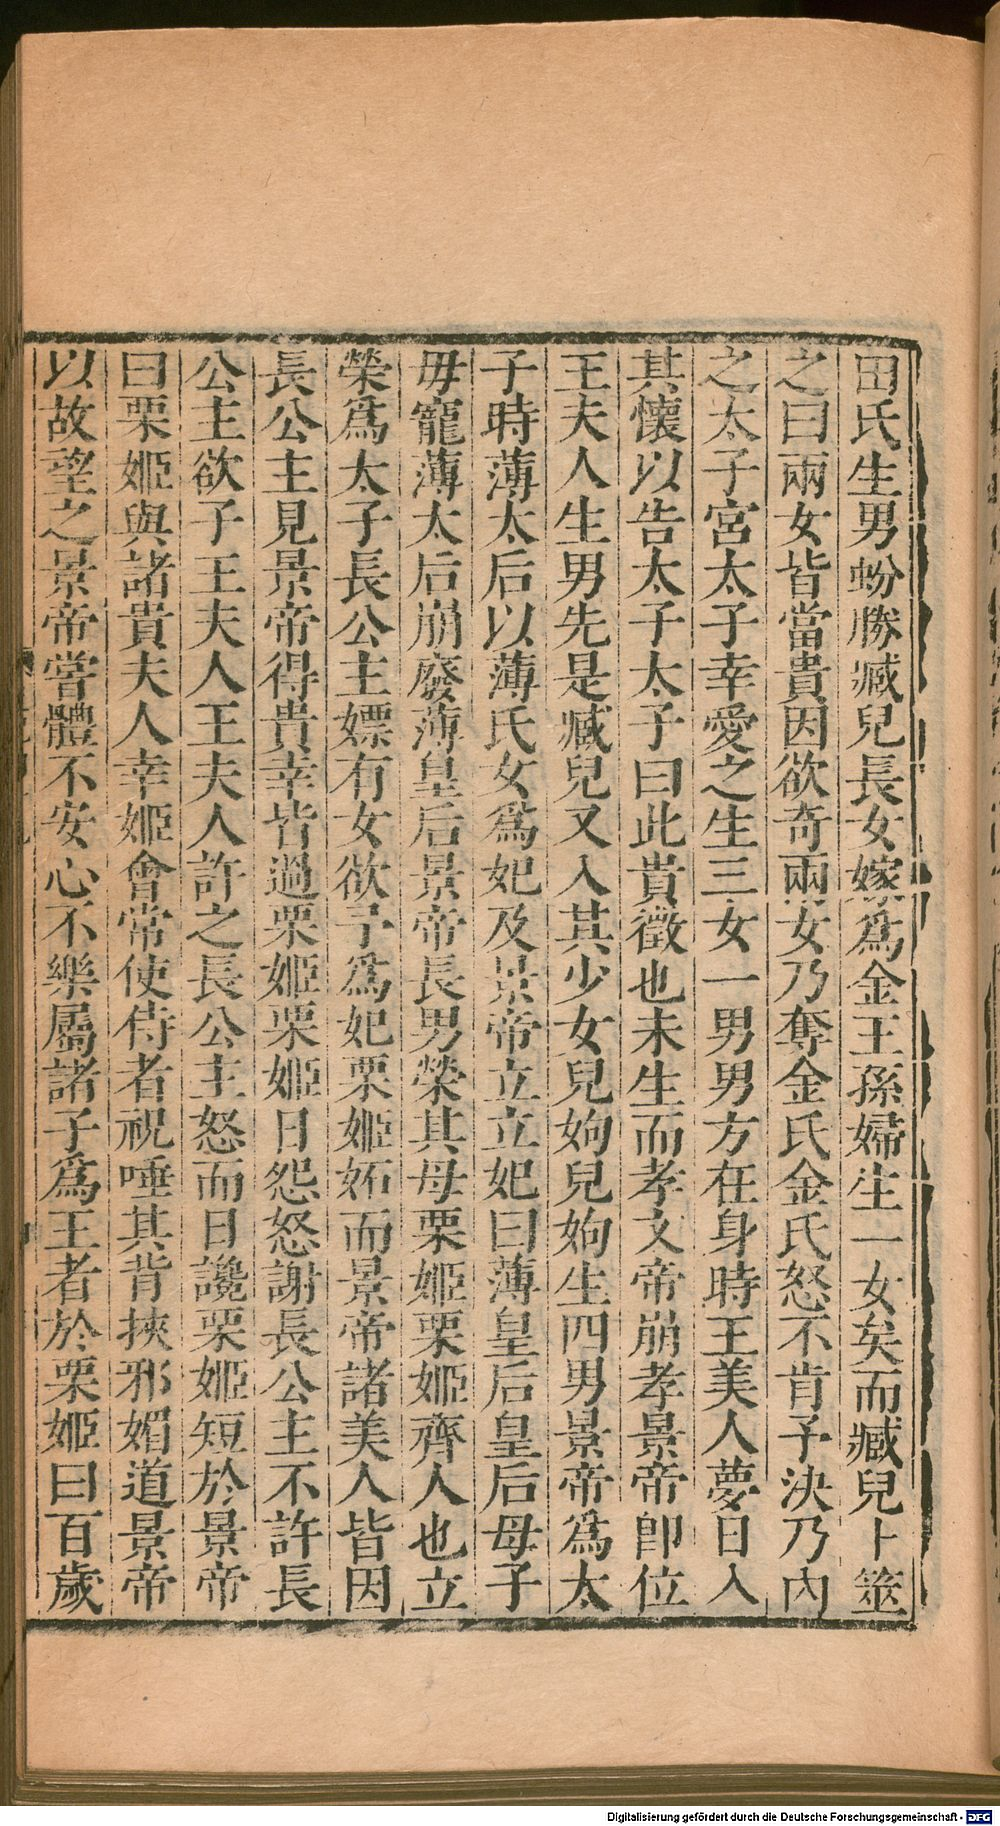 田氏生男蚡勝臧兒長女嫁爲金王孫婦生一女矣而臧兒卜筮
之曰兩女皆當貴因欲奇兩女乃奪金氏金氏怒不肯予決乃內
之太子宮太子幸愛之生三女一男男方在身時王美人夢日入
其懷以告太子太子曰此貴徵也未生而孝文帝崩孝景帝卽位
王夫人生男先是臧兒又入其少女兒姁兒姁生四男景帝爲太
子時薄太后以薄氏女爲妃及景帝立立妃曰薄皇后皇后母子
毋寵薄太后崩廢薄皇后景帝長男榮其母栗姬栗姬齊人也立
榮爲太子長公主嫖有女欲予爲妃栗姬妬而景帝諸美人皆因
長公主見景帝得貴幸皆過栗姬栗姬日怨怒謝長公主不許長
公主欲予王夫人王夫人許之長公主怒而日讒栗姬短於景帝
曰栗姬與諸貴夫人幸姬會常使侍者祝唾其背挾邪媚道景帝
以故望之景帝嘗體不安心不樂屬諸子爲王者於栗姬曰百歲
Digitalisierung gefördert durch die Deutsche Forschungsgemeinschaft - DFG